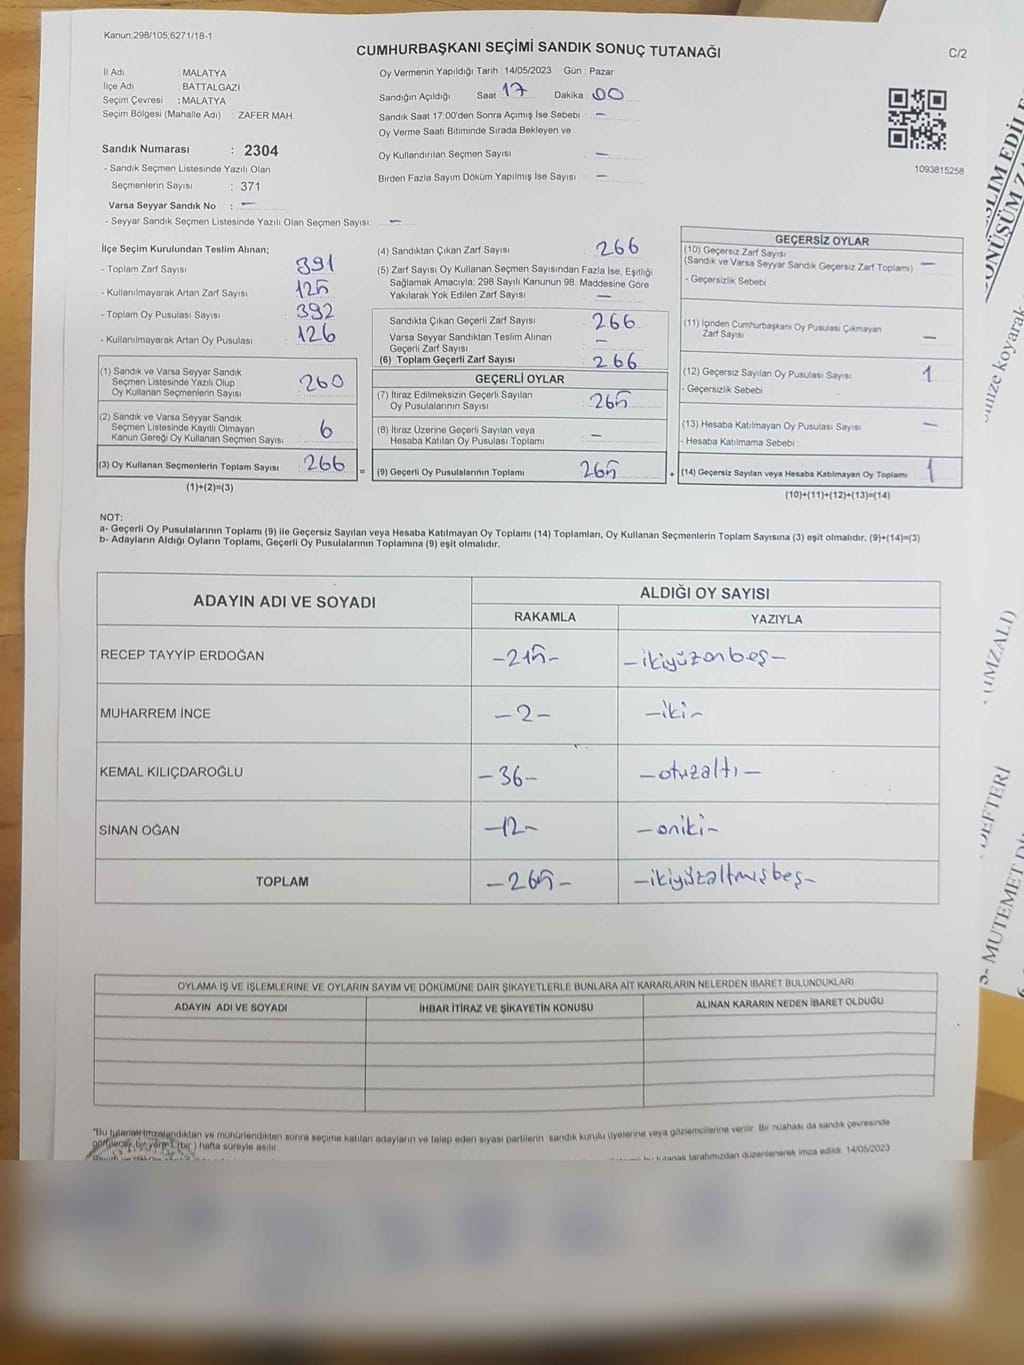 Kanun.298/105,6271/18-1
CUMHURBAŞKANI SEÇİMİ SANDIK SONUÇ TUTANAĞI
C/2
İl Adı : MALATYA
İlçe Adı : BATTALGAZİ
Seçim Çevresi : MALATYA
Seçim Bölgesi (Mahalle Adı) : ZAFER MAH.
Sandık Numarası : 2304
- Sandık Seçmen Listesinde Yazılı Olan
Seçmenlerin Sayısı : 371
Varsa Seyyar Sandık No : —
- Seyyar Sandık Seçmen Listesinde Yazılı Olan Seçmen Sayısı: —
Oy Vermenin Yapıldığı Tarih : 14/05/2023 Gün : Pazar
Sandığın Açıldığı Saat 17 Dakika 00
Sandık Saat 17:00'den Sonra Açımış İse Sebebi : —
Oy Verme Saati Bitiminde Sırada Bekleyen ve
Oy Kullandırılan Seçmen Sayısı : —
Birden Fazla Sayım Döküm Yapılmış İse Sayısı : —
1093815258
İlçe Seçim Kurulundan Teslim Alınan;
- Toplam Zarf Sayısı : 391
- Kullanılmayarak Artan Zarf Sayısı : 125
- Toplam Oy Pusulası Sayısı : 392
- Kullanılmayarak Artan Oy Pusulası : 126
(1) Sandık ve Varsa Seyyar Sandık
Seçmen Listesinde Yazılı Olup
Oy Kullanan Seçmenlerin Sayısı : 260
(2) Sandık ve Varsa Seyyar Sandık
Seçmen Listesinde Kayıtlı Olmayan
Kanun Gereği Oy Kullanan Seçmen Sayısı : 6
(3) Oy Kullanan Seçmenlerin Toplam Sayısı : 266
(1)+(2)=(3)
(4) Sandıktan Çıkan Zarf Sayısı : 266
(5) Zarf Sayısı Oy Kullanan Seçmen Sayısından Fazla İse, Eşitliği
Sağlamak Amacıyla; 298 Sayılı Kanunun 98. Maddesine Göre
Yakılarak Yok Edilen Zarf Sayısı : —
Sandıkta Çıkan Geçerli Zarf Sayısı : 266
Varsa Seyyar Sandıktan Teslim Alınan
Geçerli Zarf Sayısı : —
(6) Toplam Geçerli Zarf Sayısı : 266
GEÇERLİ OYLAR
(7) İtiraz Edilmeksizin Geçerli Sayılan
Oy Pusulalarının Sayısı : 265
(8) İtiraz Üzerine Geçerli Sayılan veya
Hesaba Katılan Oy Pusulası Toplamı : —
= (9) Geçerli Oy Pusulalarının Toplamı : 265
GEÇERSİZ OYLAR
(10) Geçersiz Zarf Sayısı
(Sandık ve Varsa Seyyar Sandık Geçersiz Zarf Toplamı) : —
- Geçersizlik Sebebi :
(11) İçinden Cumhurbaşkanı Oy Pusulası Çıkmayan
Zarf Sayısı : —
(12) Geçersiz Sayılan Oy Pusulası Sayısı : 1
- Geçersizlik Sebebi :
(13) Hesaba Katılmayan Oy Pusulası Sayısı : —
- Hesaba Katılmama Sebebi :
+ (14) Geçersiz Sayılan veya Hesaba Katılmayan Oy Toplamı : 1
(10)+(11)+(12)+(13)=(14)
NOT:
a- Geçerli Oy Pusulalarının Toplamı (9) ile Geçersiz Sayılan veya Hesaba Katılmayan Oy Toplamı (14) Toplamları, Oy Kullanan Seçmenlerin Toplam Sayısına (3) eşit olmalıdır. (9)+(14)=(3)
b- Adayların Aldığı Oyların Toplamı, Geçerli Oy Pusulalarının Toplamına (9) eşit olmalıdır.
ADAYIN ADI VE SOYADI
ALDIĞI OY SAYISI
RAKAMLA YAZIYLA
RECEP TAYYİP ERDOĞAN -215- -ikiyüzonbeş-
MUHARREM İNCE -2- -iki-
KEMAL KILIÇDAROĞLU -36- -otuzaltı-
SİNAN OĞAN -12- -oniki-
TOPLAM -265- -ikiyüzaltmışbeş-
OYLAMA İŞ VE İŞLEMLERİNE VE OYLARIN SAYIM VE DÖKÜMÜNE DAİR ŞİKAYETLERLE BUNLARA AİT KARARLARIN NELERDEN İBARET BULUNDUKLARI
ADAYIN ADI VE SOYADI İHBAR İTİRAZ VE ŞİKAYETİN KONUSU ALINAN KARARIN NEDEN İBARET OLDUĞU
"Bu tutanak imzalandıktan ve mühürlendikten sonra seçime katılan adayların ve talep eden siyasi partilerin sandık kurulu üyelerine veya gözlemcilerine verilir. Bir nüshası da sandık çevresinde
görülecek bir yere 1 (bir) hafta süreyle asılır.
bu tutanak tarafımızdan düzenlenerek imza edildi. 14/05/2023
koyarak
(İMZALI)
DEFTERİ
5- MUTEMET